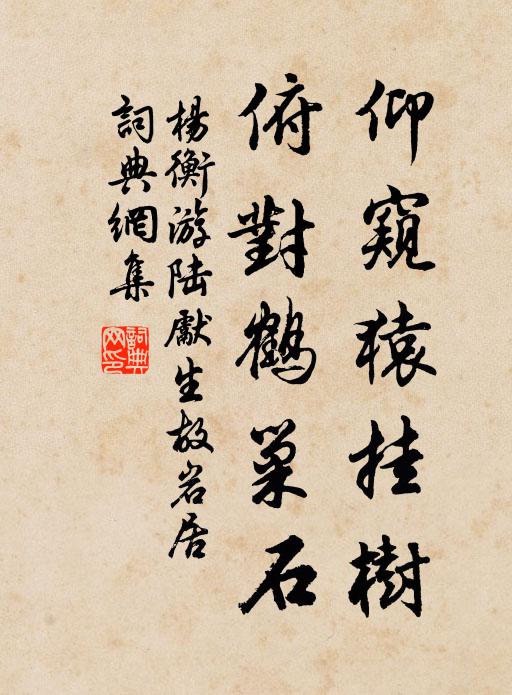 仰窺猿挂樹
俯對鶴巢石
楊衡游陆獻生故岩居
詞典網集
詞典网印